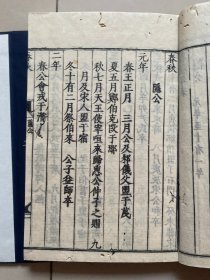 春秋
隱公
元年
春王正月 三月公及邾儀父盟于蔑
夏五月鄭伯克段于鄢
秋七月天王使宰咺來歸惠公仲子之賵 九
月及宋人盟于宿
冬十有二月祭伯來 公子益師卒
二年
春公會戎于潛
春秋
隱公